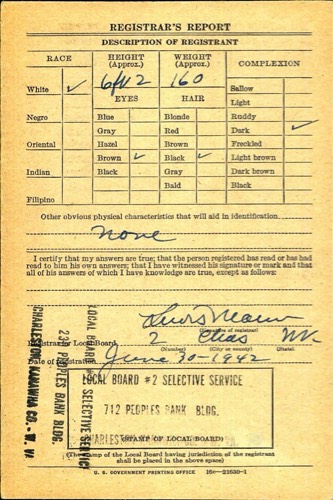 REGISTRAR'S REPORT
DESCRIPTION OF REGISTRANT
RACE HEIGHT (Approx.) WEIGHT (Approx.) COMPLEXION
6 ft 2 160
White ✓ Sallow
EYES HAIR Light
Negro Blue Blonde Ruddy
Gray Red Dark ✓
Oriental Hazel Brown Freckled
Brown ✓ Black ✓ Light brown
Indian Black Gray Dark brown
Bald Black
Filipino
Other obvious physical characteristics that will aid in identification
None
I certify that my answers are true; that the person registered has read or has had
read to him his own answers; that I have witnessed his signature or mark and that
all of his answers of which I have knowledge are true, except as follows:
(Signature of registrar)
Registrar for Local Board 2 Chas W.
(Number) (City or county) (State)
Date of registration June 30-1942
LOCAL BOARD #2 SELECTIVE SERVICE
712 PEOPLES BANK BLDG.
CHARLESTON
(STAMP OF LOCAL BOARD)
(The stamp of the Local Board having jurisdiction of the registrant
shall be placed in the above space)
U. S. GOVERNMENT PRINTING OFFICE 16c—21630-1
LOCAL BOARD SELECTIVE SERVICE
PEOPLES BANK BLDG.
CHARLESTON KANAWHA CO. W. VA